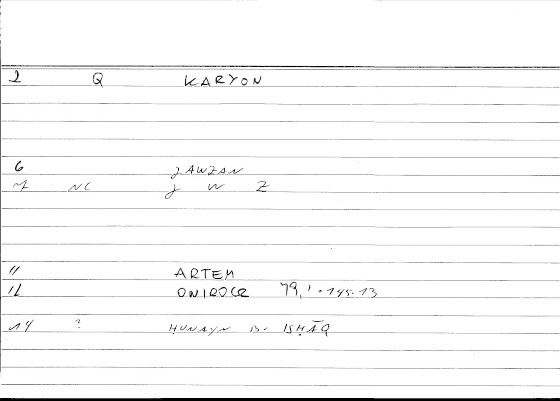 2 Q KARYON
6 JAWZAN
M NC J W Z
11 ARTEM
12 ONIROCR 79,1 - 145.13
14 ? HUNAYN B. ISḤĀQ